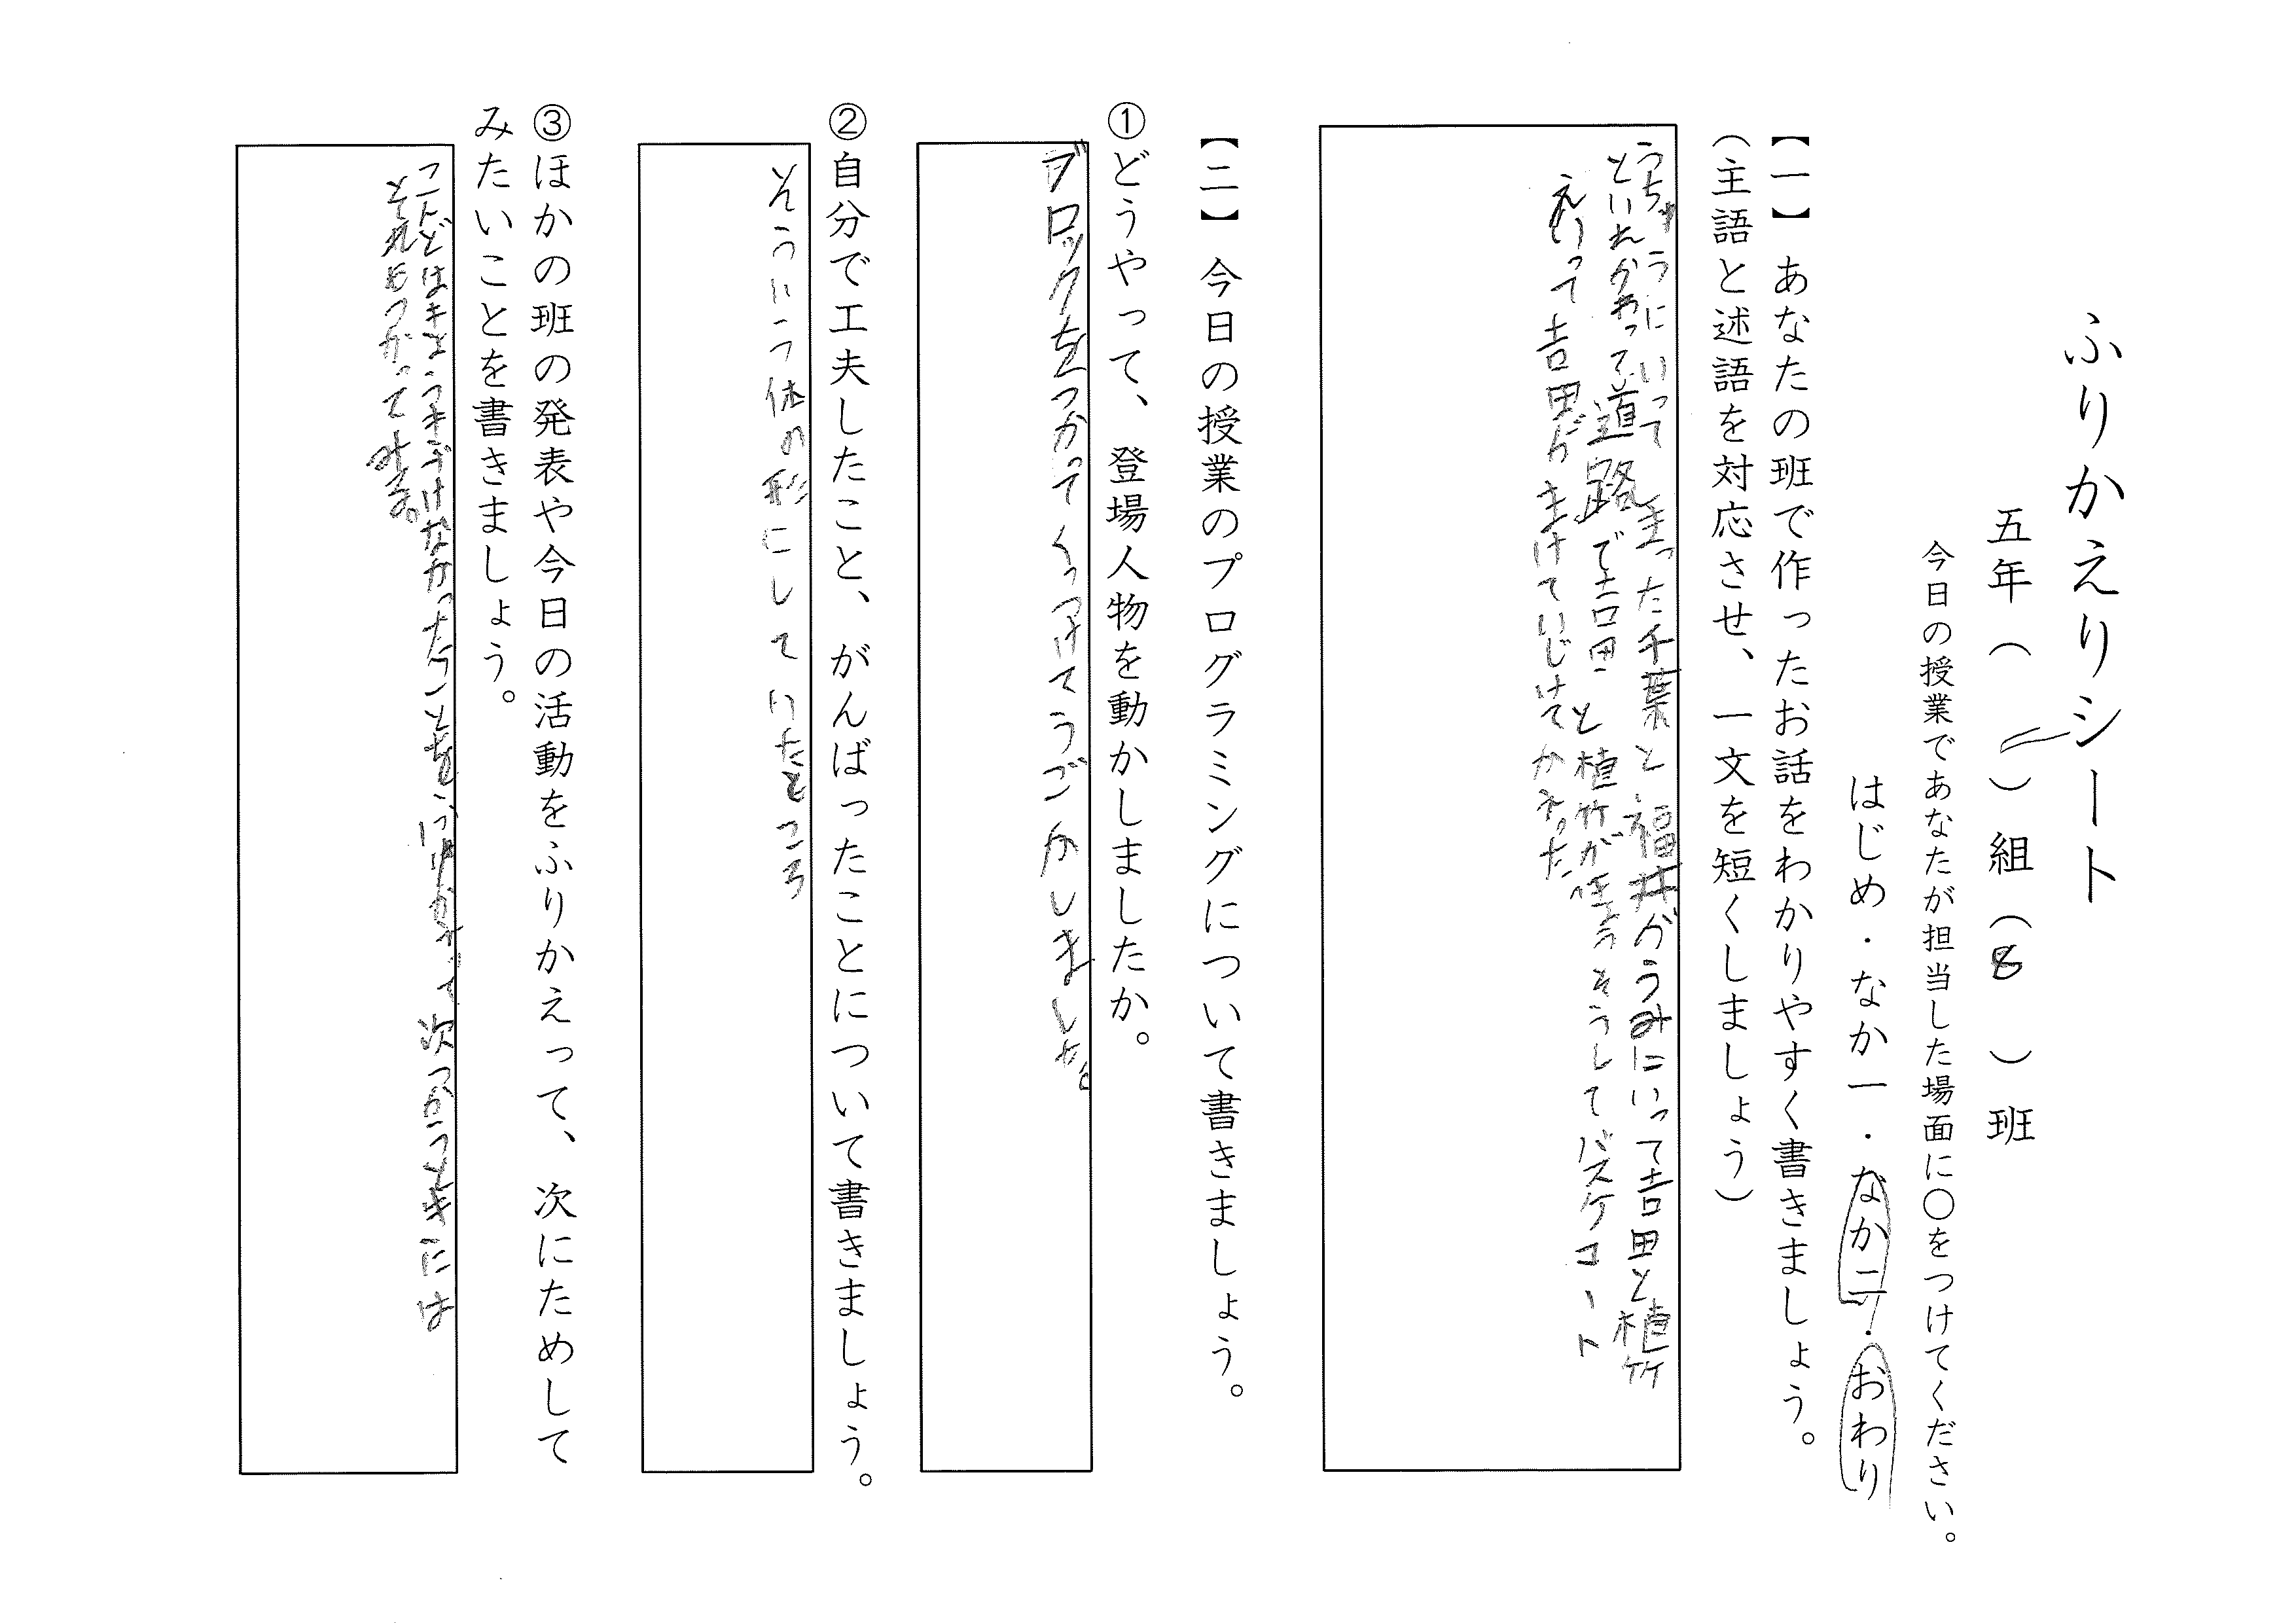 ふりかえりシート
五年（　）組（8）班
今日の授業であなたが担当した場面に〇をつけてください。
はじめ・なか一・なか二・おわり
【一】あなたの班で作ったお話をわかりやすく書きましょう。
（主語と述語を対応させ、一文を短くしましょう）
うちゅうにいって まった千葉と福井がうみにいって吉田と植竹
といれかわって道路で吉田と植竹が そうしてバスケコート
えいって吉田がまけていじけてかえった
【二】今日の授業のプログラミングについて書きましょう。
①どうやって、登場人物を動かしましたか。
ブロックをつかってくっつけてうごかしました
②自分で工夫したこと、がんばったことについて書きましょう。
そういう体の形にしていたところ
③ほかの班の発表や今日の活動をふりかえって、次にためして
みたいことを書きましょう。
こんどはきょうきずけなかったことを 次つかうときには
それもつかってみる。